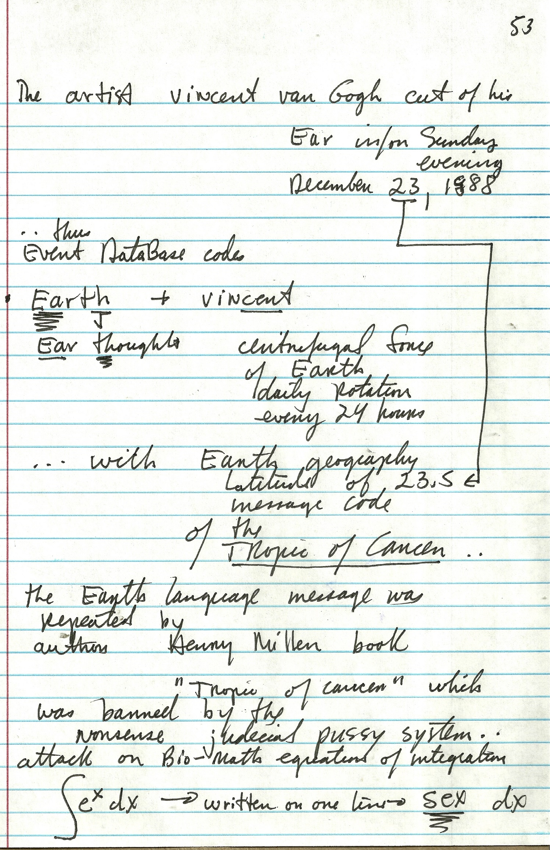 53
The artist vincent van Gogh cut of his
Ear in/on Sunday
evening
December 23, 1988
.. thus
Event DataBase codes
Earth + vincent
Ear thoughts centrifugal force
of Earth
daily Rotation
every 24 hours
... with Earth geography
latitude of 23.5
message code
of the
Tropic of Cancer ..
the Earth language message was
repeated by
author Henry Miller book
"Tropic of cancer" which
was banned by the
nonsense judecial pussy system..
attack on Bio-Math equation of integration
∫e^x dx → written on one line → sex dx